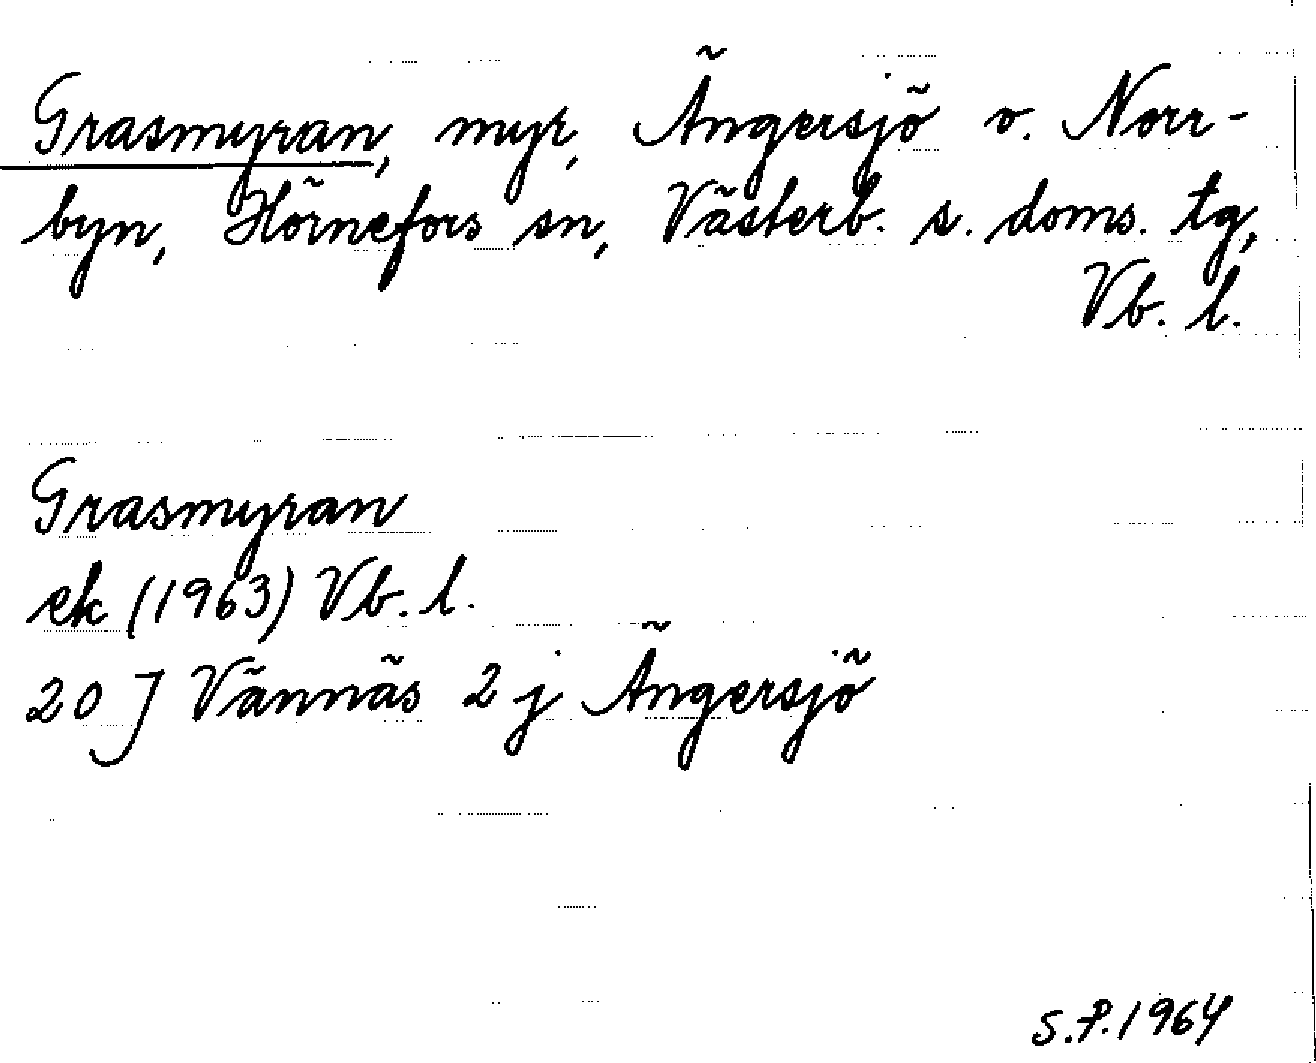 Grasmyran, myr, Ängersjö o. Norr-
byn, Hörnefors sn, Västerb. s. doms. tg,
Vb. l.
Grasmyran
ek (1963) Vb. l.
20 J Vännäs 2 j Ängersjö
S.P. 1964